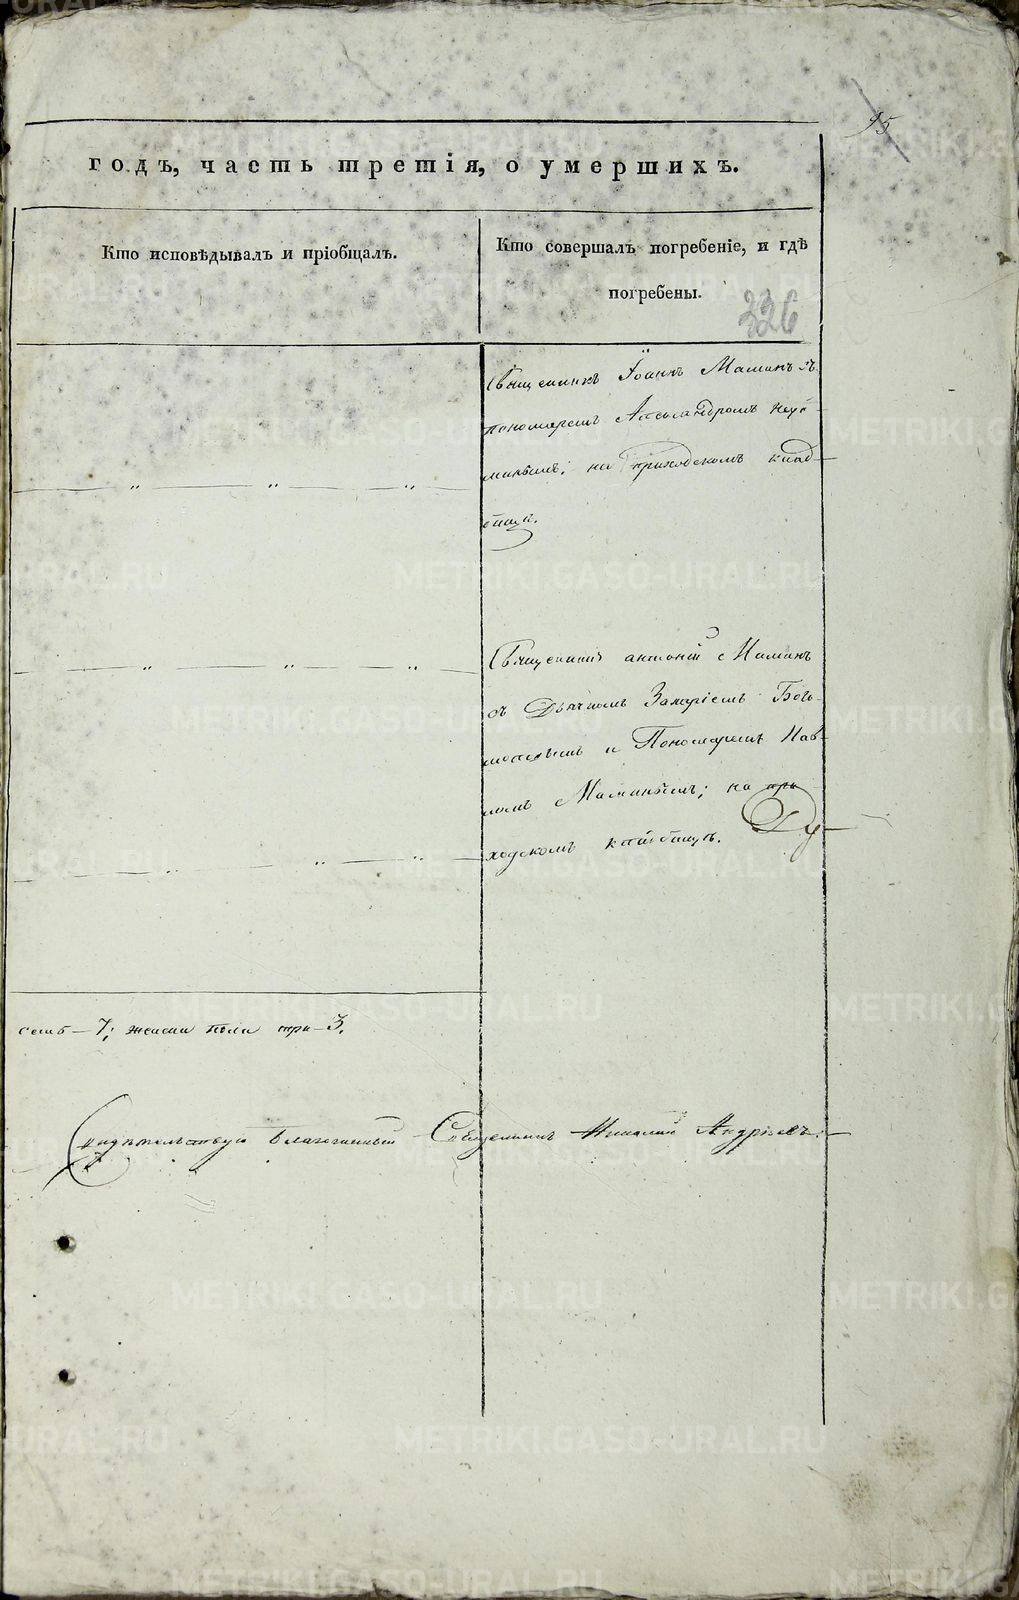 95
годъ, часть третія, о умершихъ.
Кто исповѣдывалъ и пріобщалъ.
Кто совершалъ погребеніе, и гдѣ
погребены.
326
Священникъ Іоаннъ Маминъ съ
пономаремъ Александромъ
на приходскомъ клад-
бищѣ.
Священникъ Антоній Маминъ
съ Дьячкомъ Захаріемъ Бого-
и Пономаремъ Пав-
ломъ Маминымъ; на при-
ходскомъ кладбищѣ.
семь-7; женска пола три-3.
Свидѣтельствую Благочинный Священникъ Николай Андреевъ.
METRIKI.GASO-URAL.RU